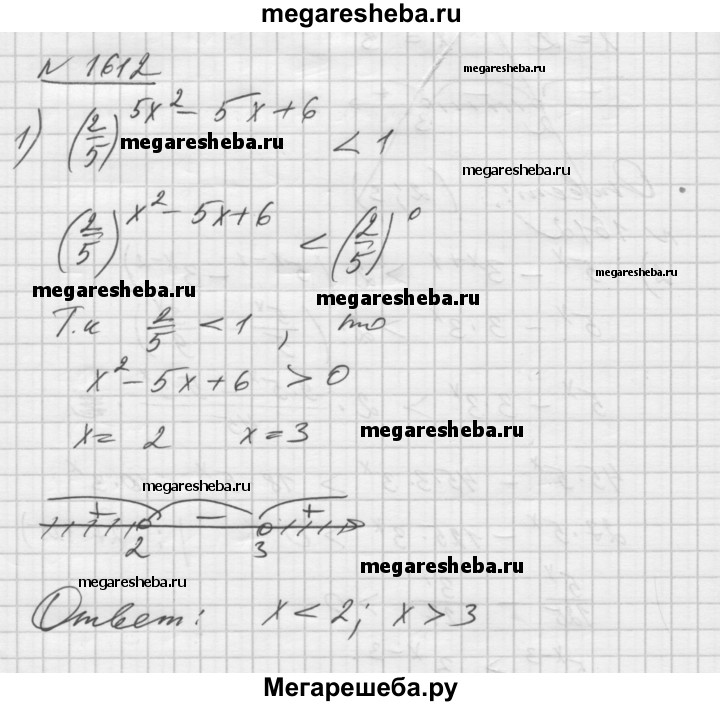 megaresheba.ru
N 1612
megaresheba.ru
1) (2/5)^(5x² - 5x + 6) < 1
megaresheba.ru
megaresheba.ru
(2/5)^(x² - 5x + 6) < (2/5)^0
megaresheba.ru
megaresheba.ru
megaresheba.ru
Т.к 2/5 < 1, то
x² - 5x + 6 > 0
x = 2 x = 3
megaresheba.ru
megaresheba.ru
+ - +
2 3
megaresheba.ru
megaresheba.ru
Ответ: x < 2; x > 3
Мегарешеба.ру